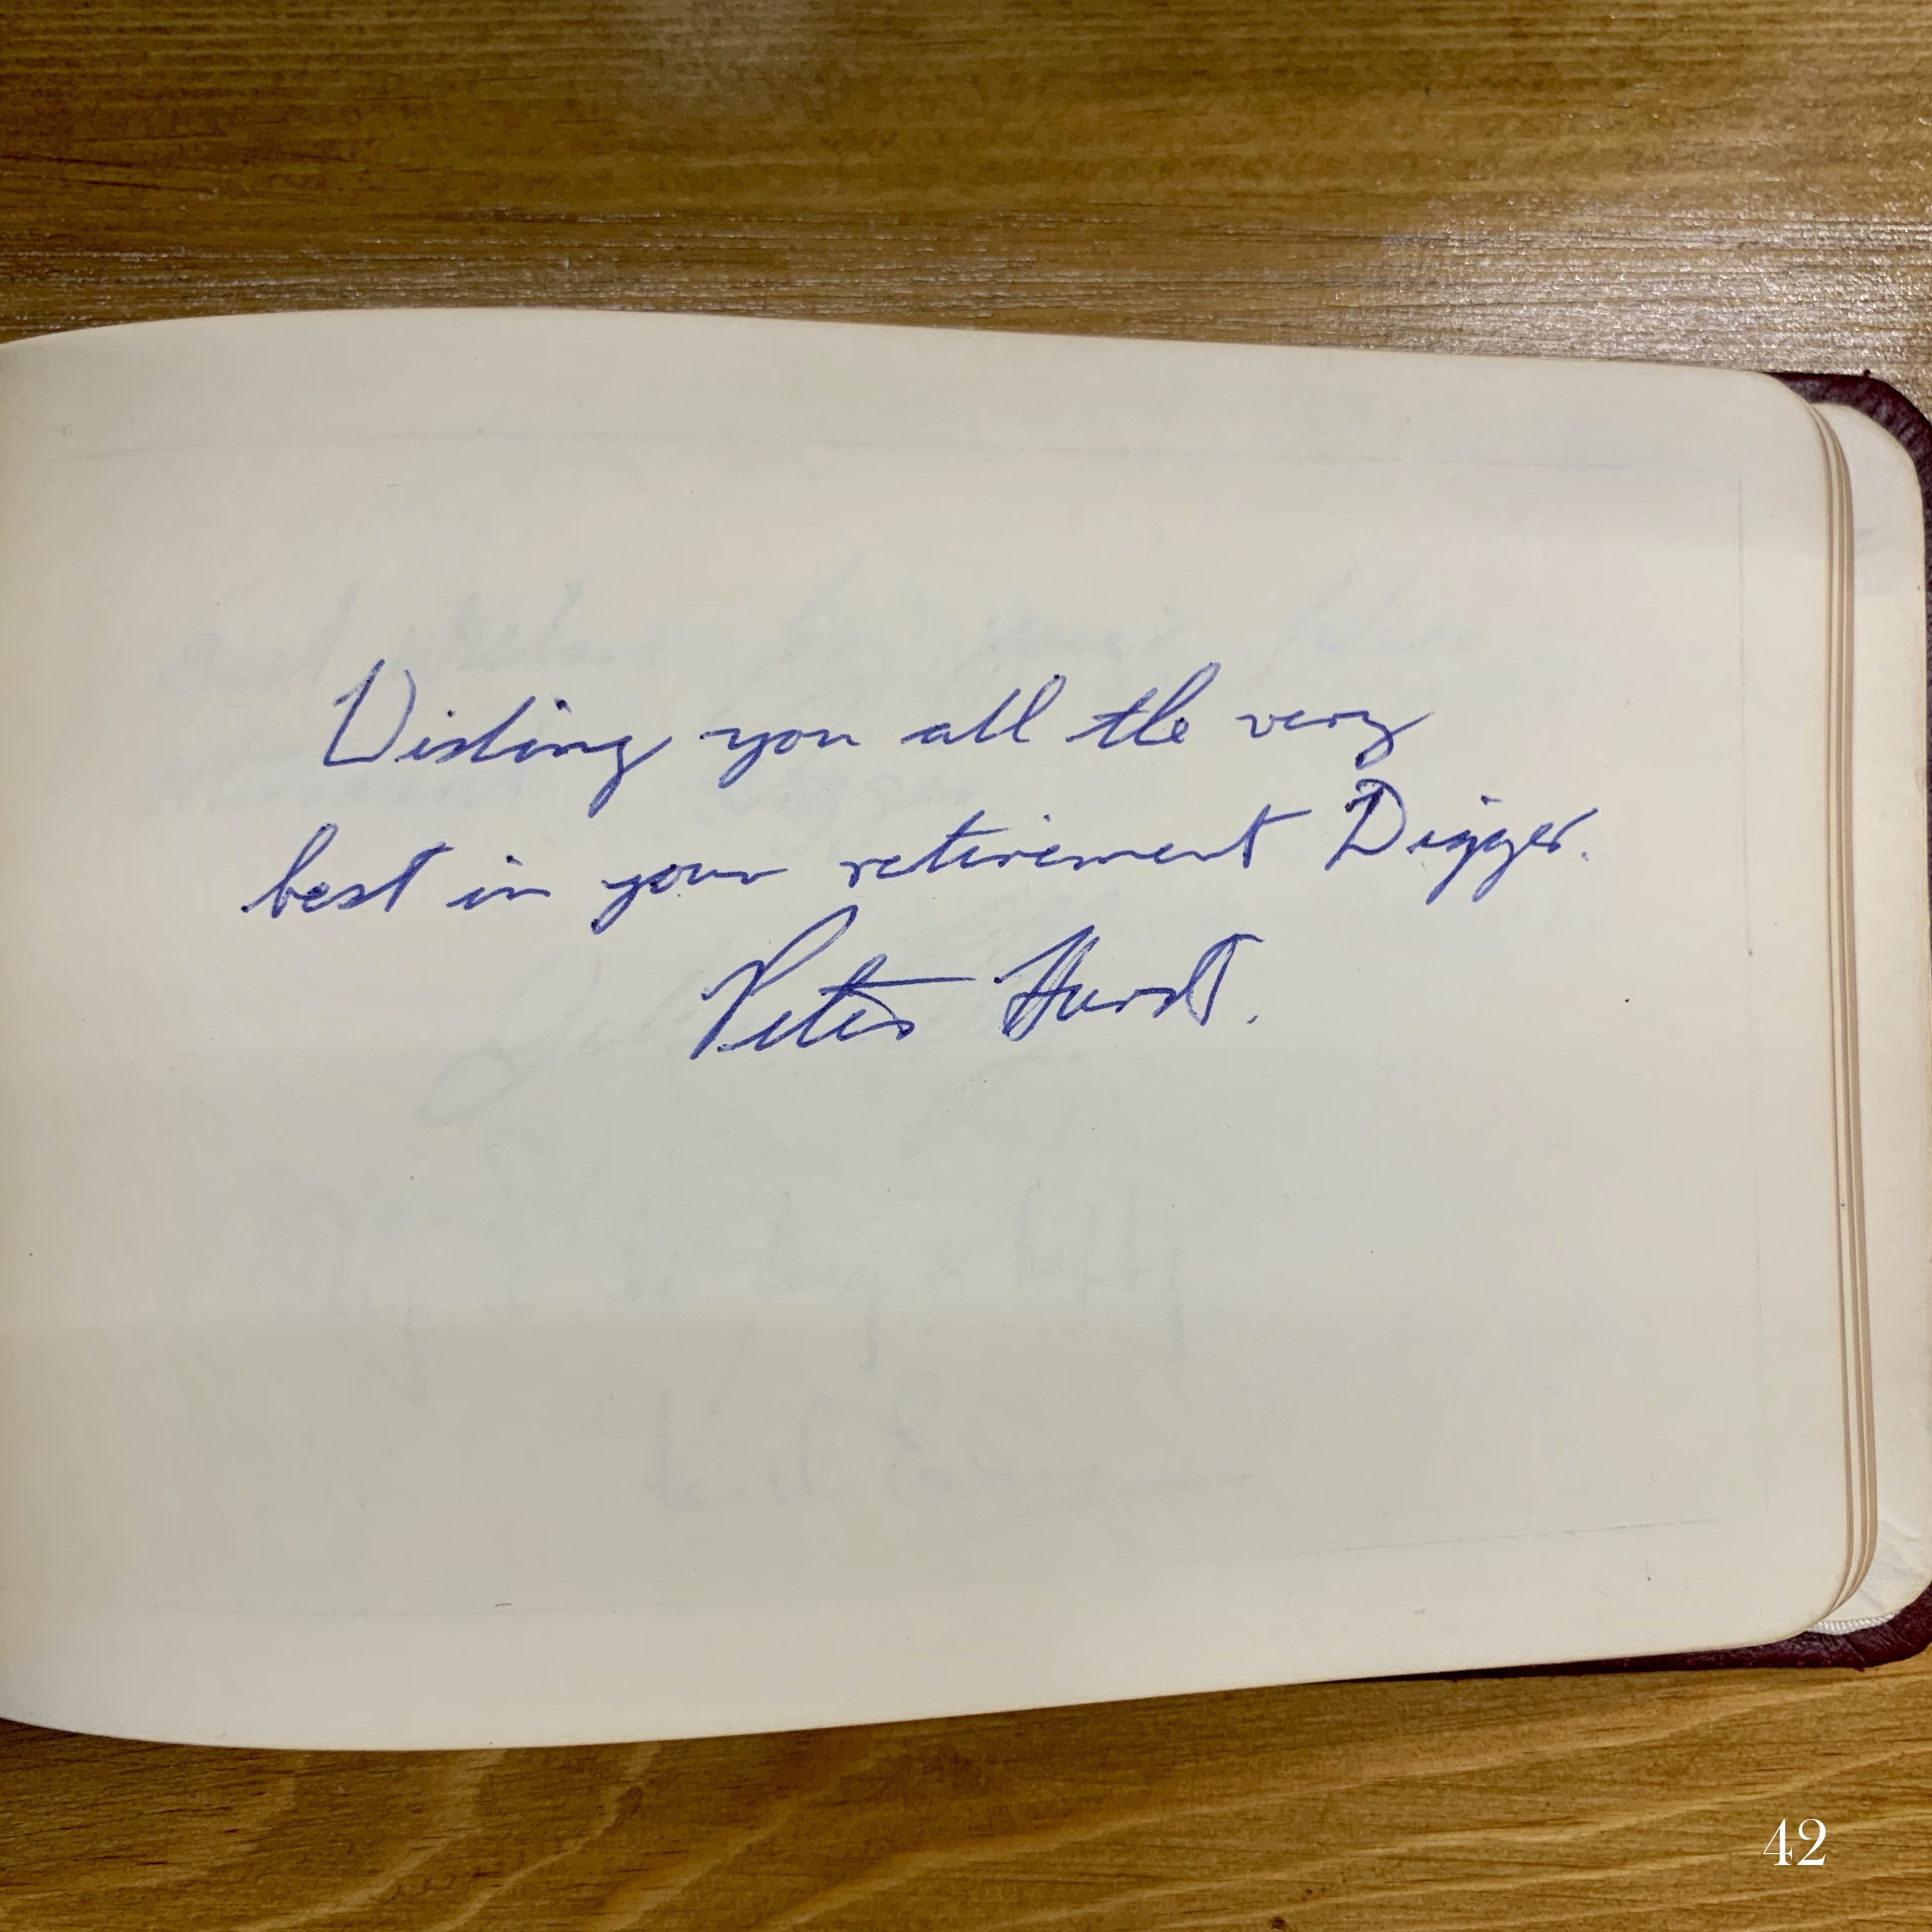 Wishing you all the very
best in your retirement Digger.
Peter Hurst.
42